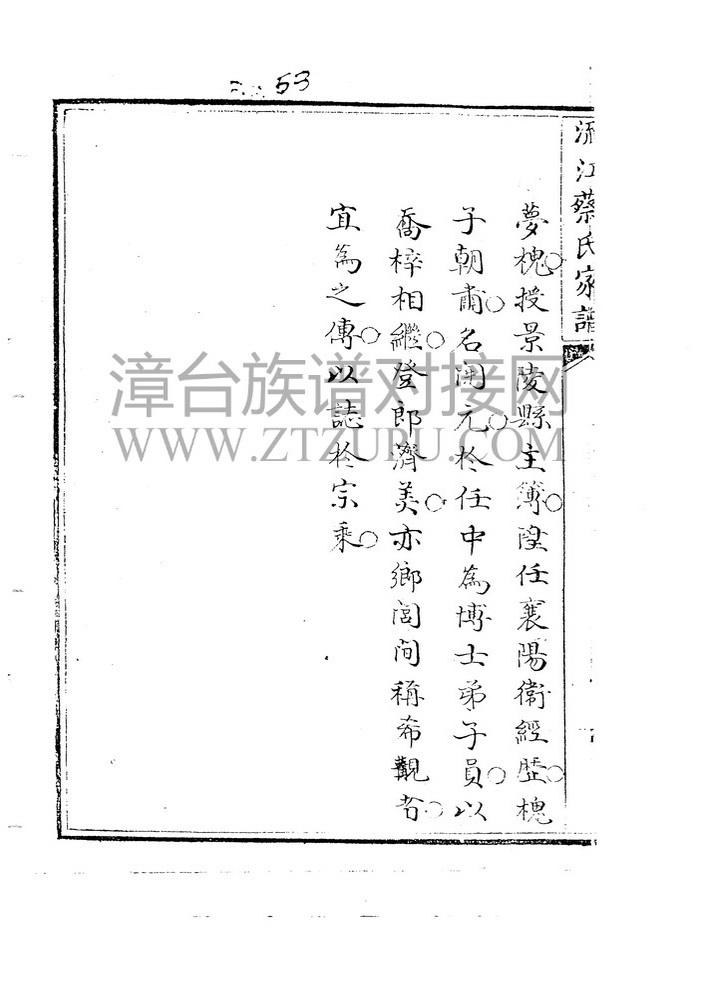 53
流江蔡氏家譜
夢槐○授景陵縣主簿○陞任襄陽衛經歷○槐
子朝肅○名開元○於任中為博士弟子員○以
喬梓相繼○登郎濟美○亦鄉閭間稱希觀者○
宜為之傳○以誌於宗乘○
漳台族谱对接网
WWW.ZTZUPU.COM